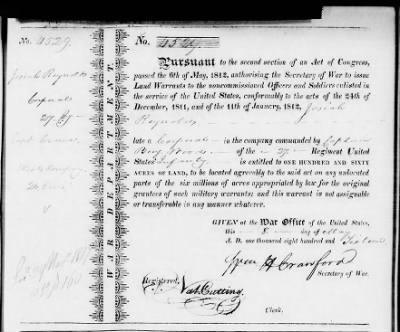 No. 4529.
Josiah Reynolds
Corporal
27 
WAR DEPARTMENT.
No. 4529
Pursuant to the second section of an Act of Congress,
passed the 6th of May, 1812, authorising the Secretary of War to issue
Land Warrants to the noncommissioned Officers and Soldiers enlisted in
the service of the United States, conformably to the acts of the 24th of
December, 1811, and of the 11th of January, 1812, Josiah
Reynolds
late a Corporal in the company commanded by Captain
of the 27 Regiment United
States Infantry is entitled to ONE HUNDRED AND SIXTY
ACRES OF LAND, to be located agreeably to the said act on any unlocated
part of the six millions of acres appropriated by law for the original
grantees of such military warrants; and this warrant is not assignable
or transferable in any manner whatever.
GIVEN at the War Office of the United States,
this 8 day of May
A. D. one thousand eight hundred and
Wm H Crawford
Secretary of War.
Registered,
Nat. Cutting
Clerk.